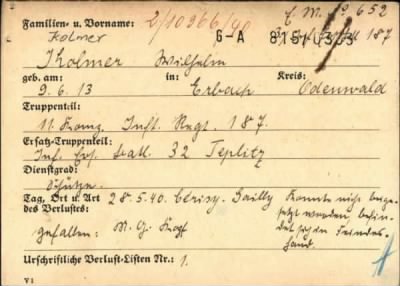 Familien- u. Vorname: 2/10966/40 E. M. No 652
Kolmer G-A 187
Kolmer Wilhelm
geb. am: in: Kreis:
9. 6. 13 Erbach Odenwald
Truppenteil:
11. Komp. Inft. Regt. 187.
Ersatz-Truppenteil:
Inf. Ers. Batl. 32 Teplitz
Dienstgrad:
Schütze
Tag, Ort u. Art 28.5.40. Gailly Konnte nicht beige-
des Verlustes: setzt werden befin-
gefallen: M. G. Kopf det sich in Feindes-
hand.
Urschriftliche Verlust-Listen Nr.: 1.
VI